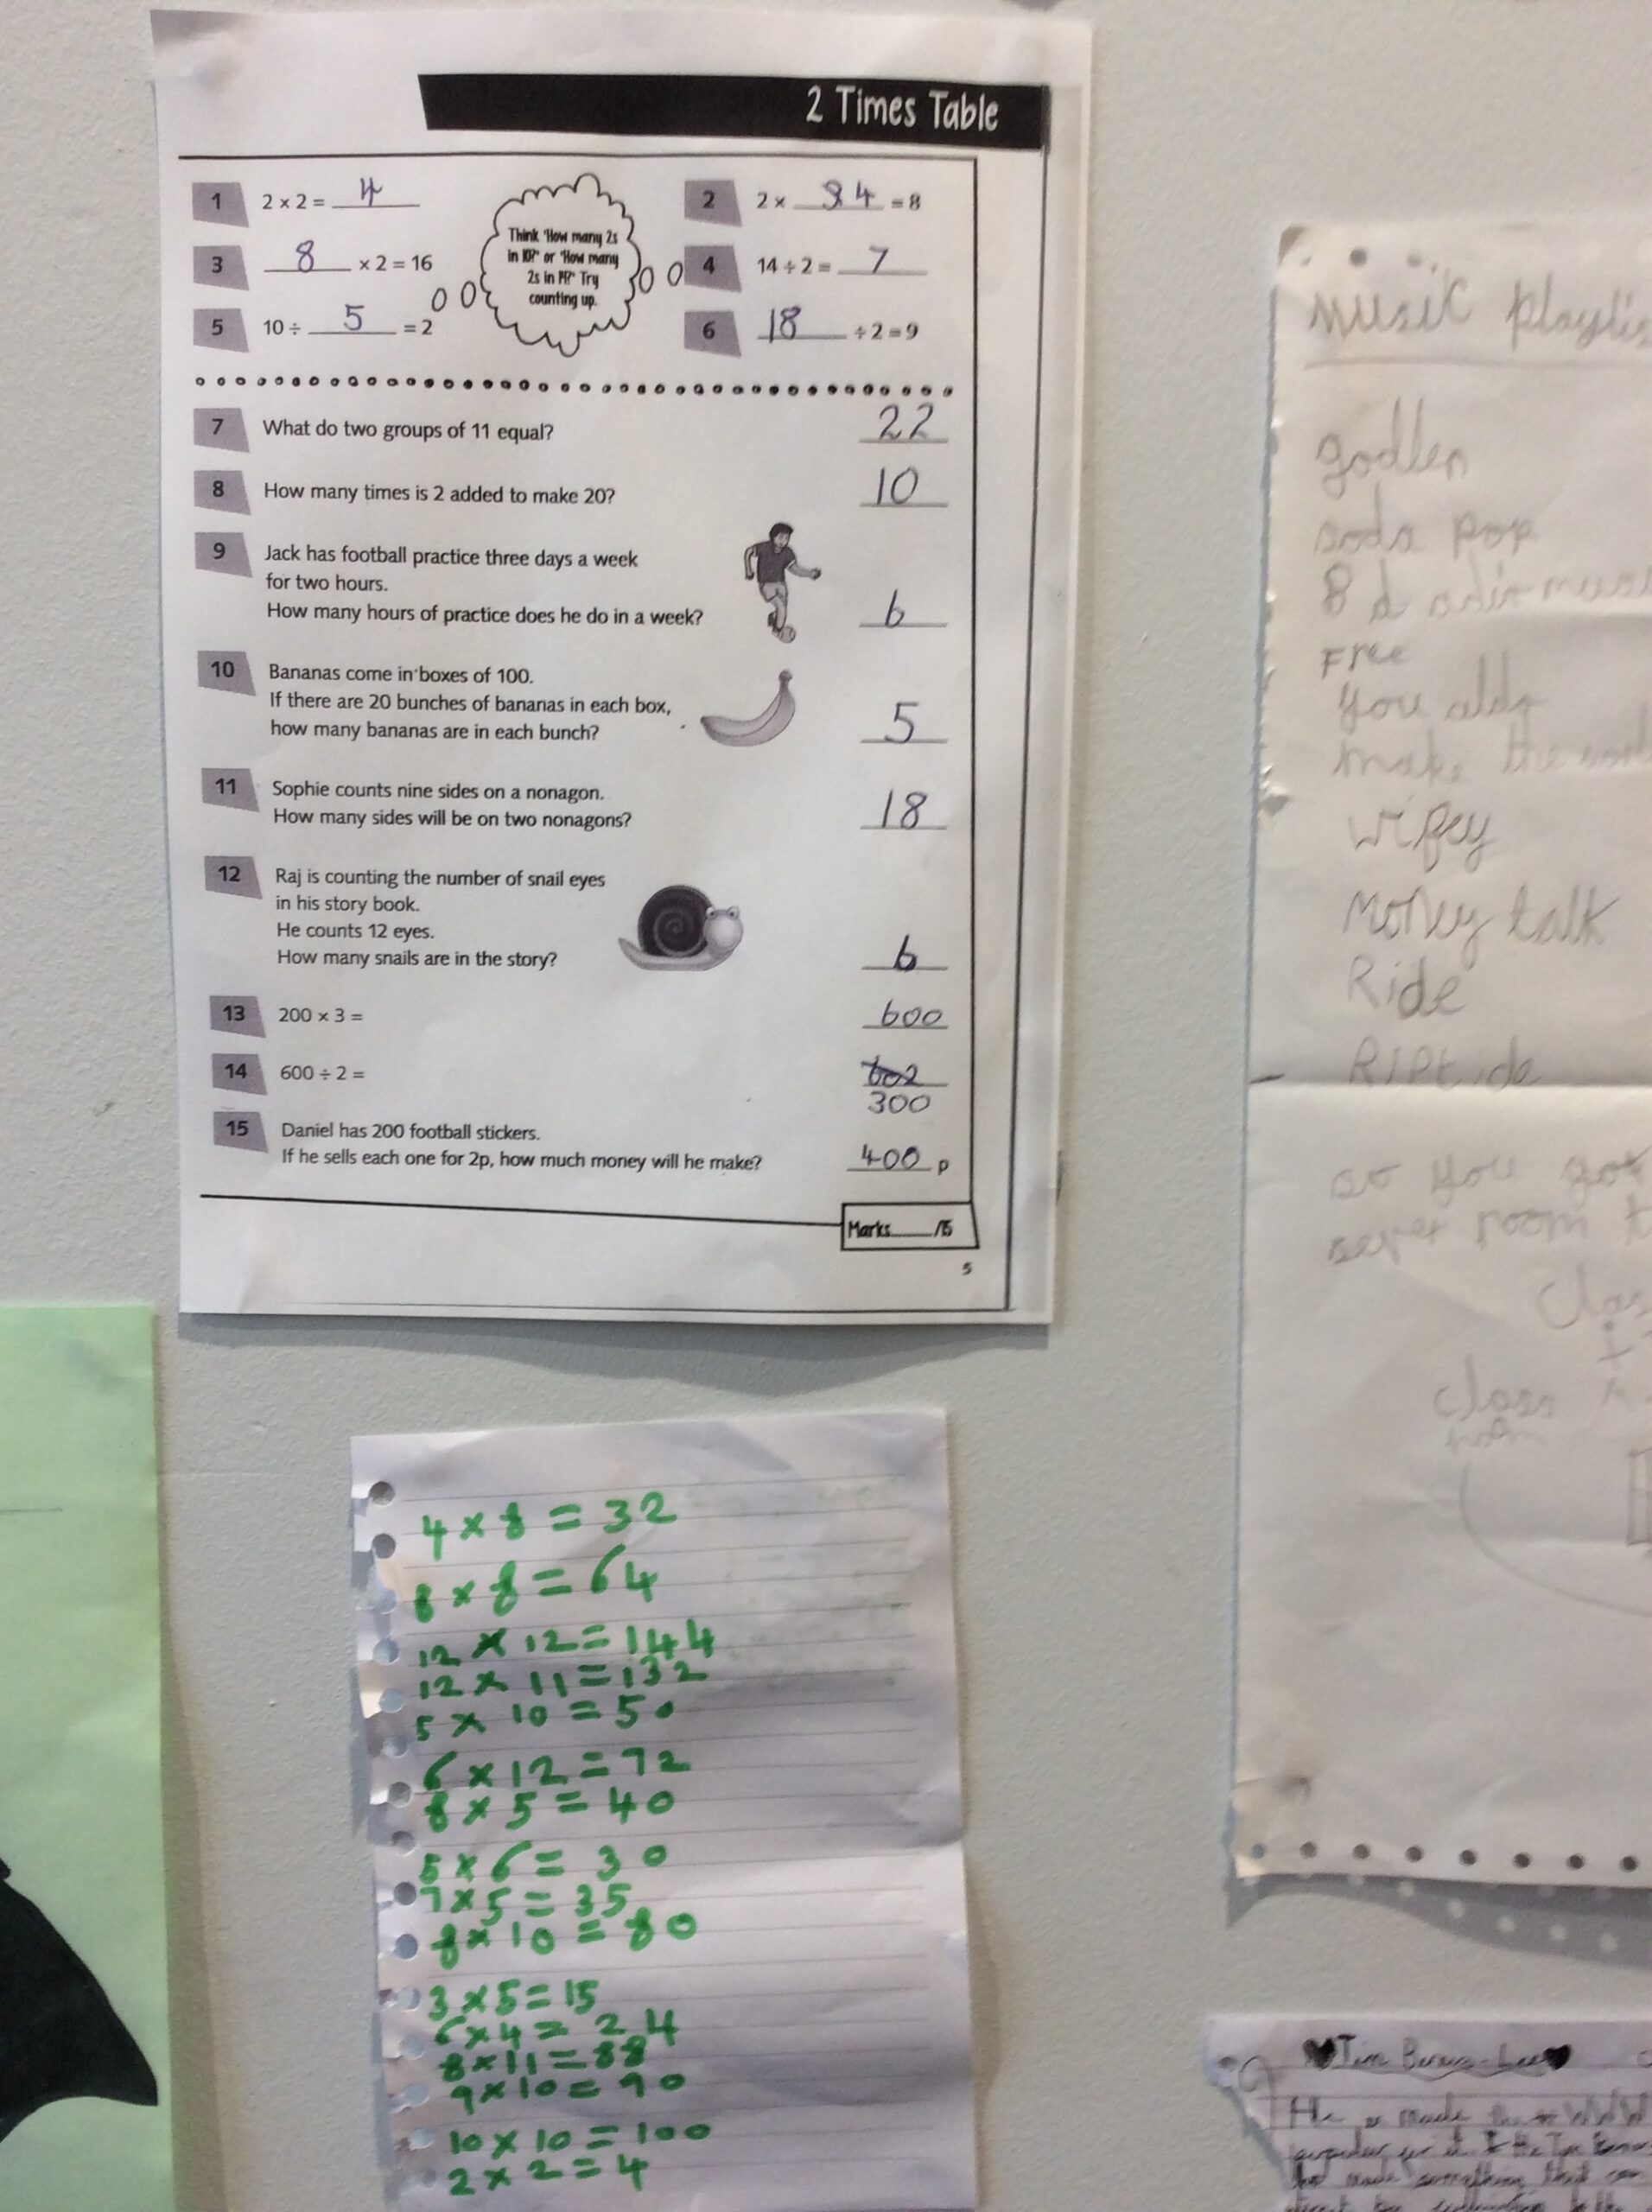 2 Times Table
1 2 × 2 = 4
2 2 × 4 = 8
3 8 × 2 = 16
4 14 ÷ 2 = 7
5 10 ÷ 5 = 2
6 18 ÷ 2 = 9
Think 'How many 2s
in 10?' or 'How many
2s in 14?' Try
counting up.
7 What do two groups of 11 equal? 22
8 How many times is 2 added to make 20? 10
9 Jack has football practice three days a week
for two hours.
How many hours of practice does he do in a week? 6
10 Bananas come in boxes of 100.
If there are 20 bunches of bananas in each box,
how many bananas are in each bunch? 5
11 Sophie counts nine sides on a nonagon.
How many sides will be on two nonagons? 18
12 Raj is counting the number of snail eyes
in his story book.
He counts 12 eyes.
How many snails are in the story? 6
13 200 × 3 = 600
14 600 ÷ 2 = 602
300
15 Daniel has 200 football stickers.
If he sells each one for 2p, how much money will he make? 400 p
Marks /15
5
4 × 8 = 32
8 × 8 = 64
12 × 12 = 144
12 × 11 = 132
5 × 10 = 50
6 × 12 = 72
8 × 5 = 40
5 × 6 = 30
7 × 5 = 35
8 × 10 = 80
3 × 5 = 15
6 × 4 = 24
8 × 11 = 88
9 × 10 = 90
10 × 10 = 100
2 × 2 = 4
music
godlen
soda pop
8 d
Free
you
make the
wifey
Money talk
Ride
Riptide
so you got
room
class
room
He made WWW
made something that